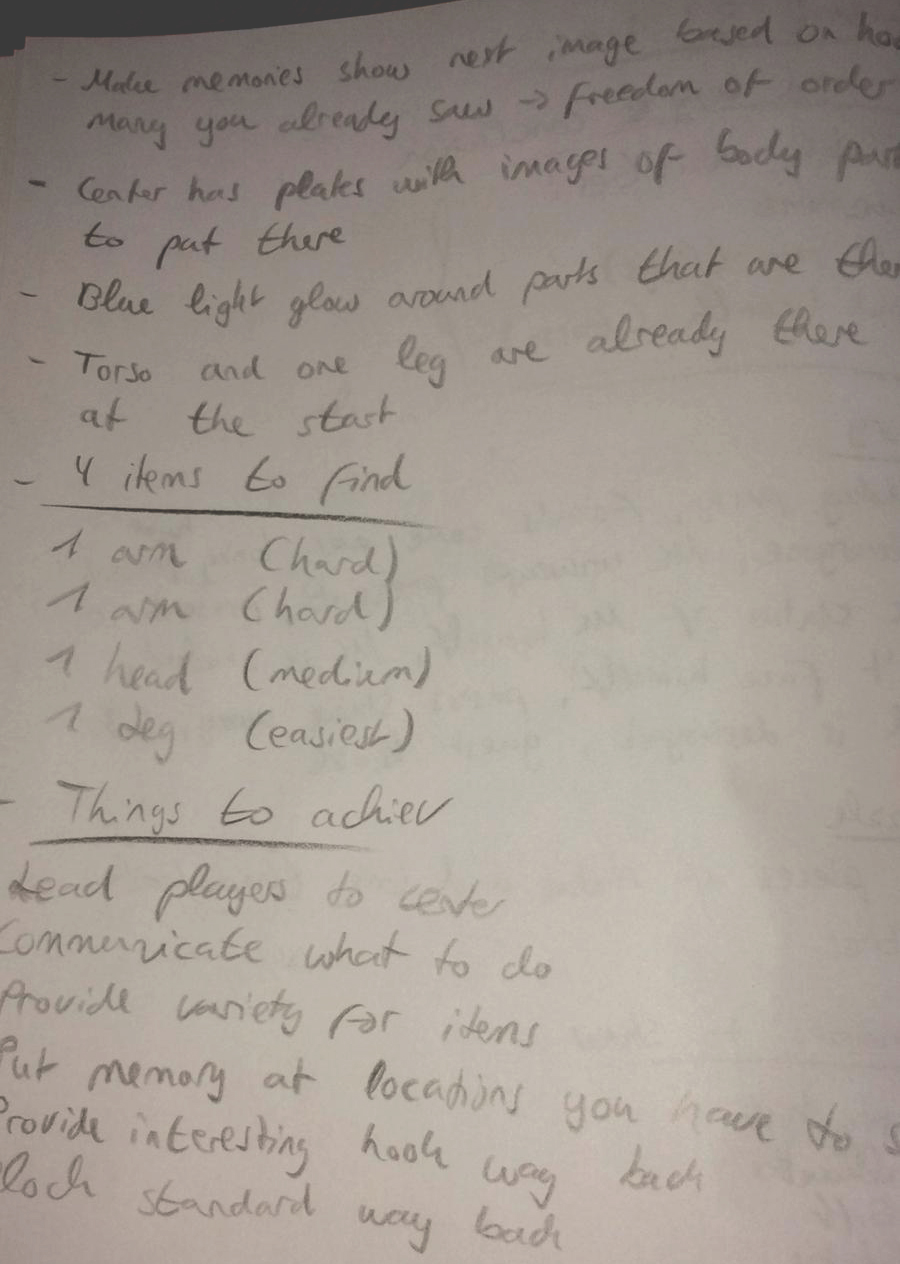 - Make memories show next image based on ho
many you already saw -> freedom of order
- Center has plates with images of body par
to put there
- Blue light glow around parts that are the
- Torso and one leg are already there
at the start
- 4 items to find
1 arm (hard)
1 arm (hard)
1 head (medium)
1 leg (easiest)
- Things to achiev
Lead players to center
Communicate what to do
Provide variety for items
Put memory at locations you have to s
Provide interesting hook way back
lock standard way back